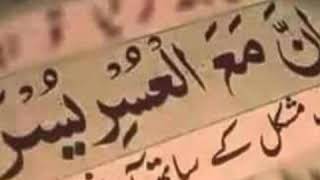 اِنَّ مَعَ الْعُسْرِ يُسْرً
مشکل کے ساتھ